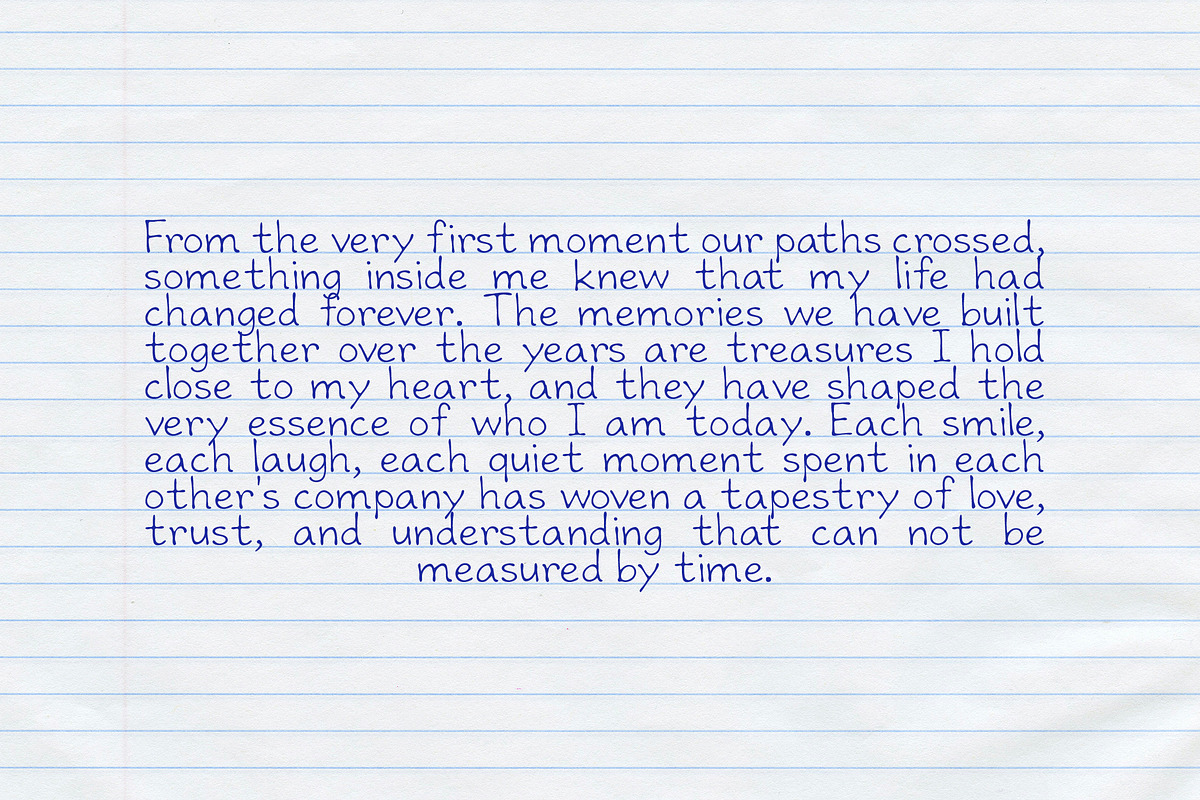 From the very first moment our paths crossed,
something inside me knew that my life had
changed forever. The memories we have built
together over the years are treasures I hold
close to my heart, and they have shaped the
very essence of who I am today. Each smile,
each laugh, each quiet moment spent in each
other's company has woven a tapestry of love,
trust, and understanding that can not be
measured by time.